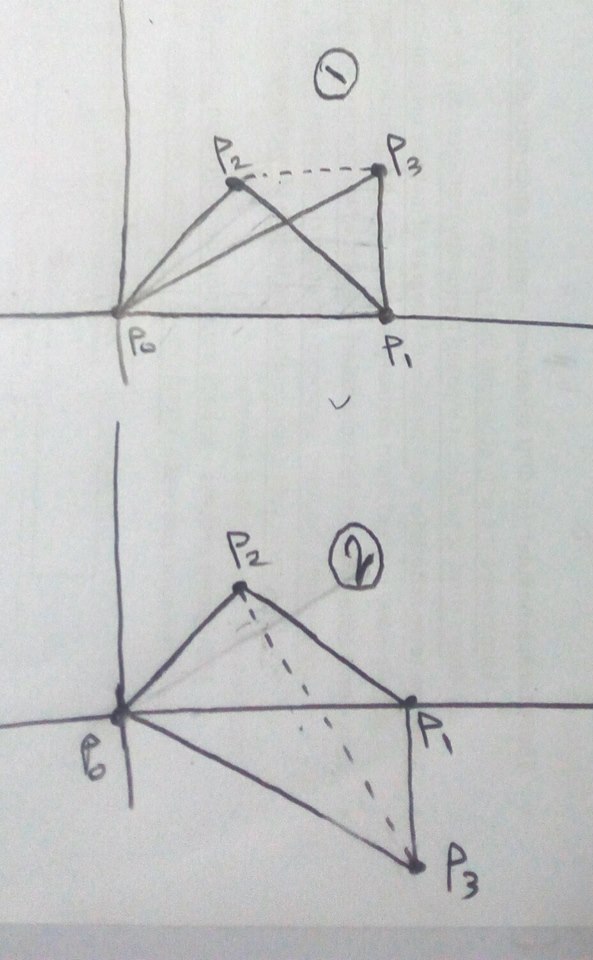 ۱
P2 P3
P0 P1
P2 ۲
P0 P1
P3